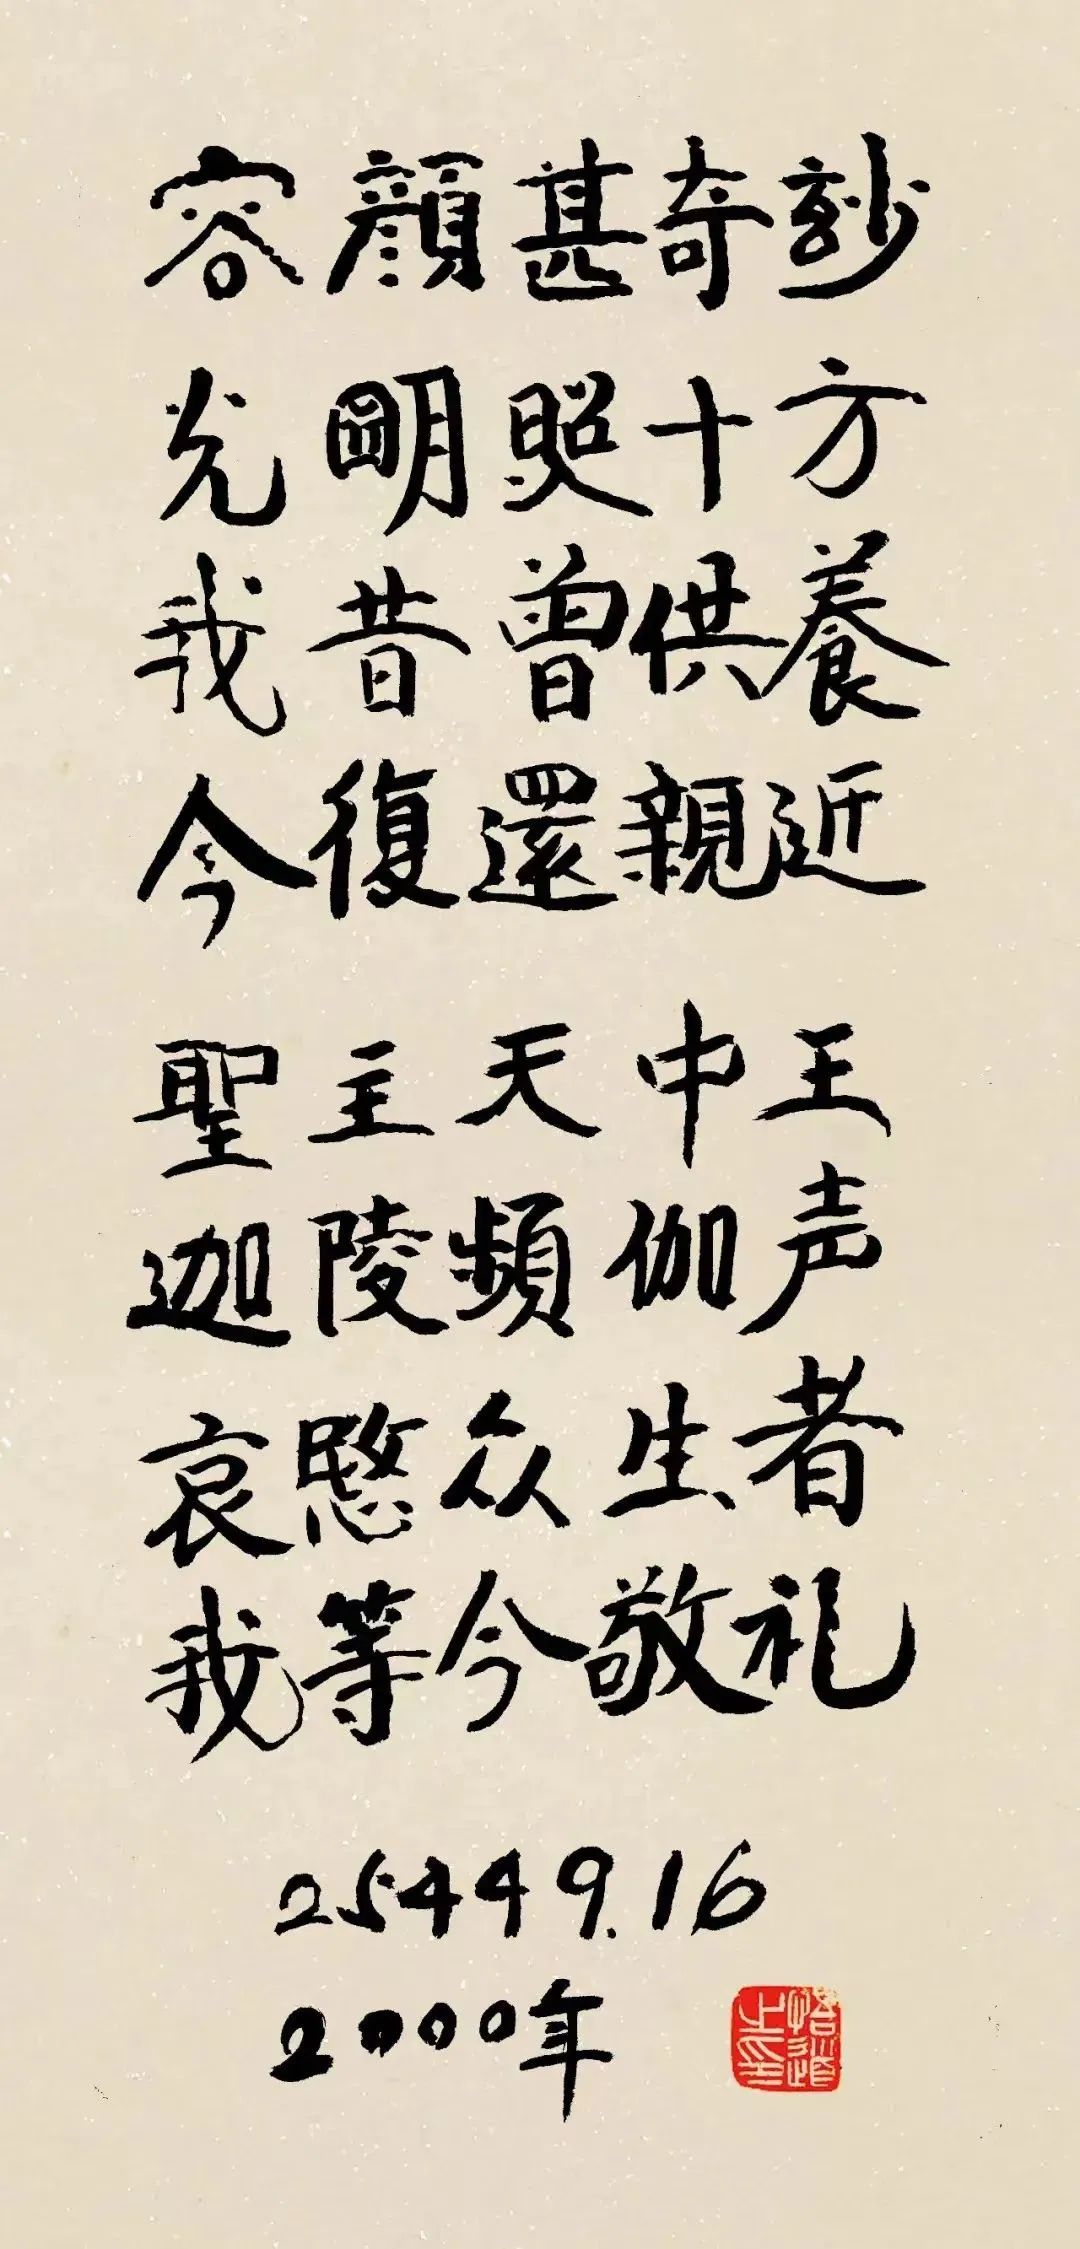 容顔甚奇玅
光朙照十方
我昔曾供養
今復還親近
聖主天中王
迦陵頻伽声
哀愍众生者
我等今敬礼
2544 9.16
2000年
悟道之印